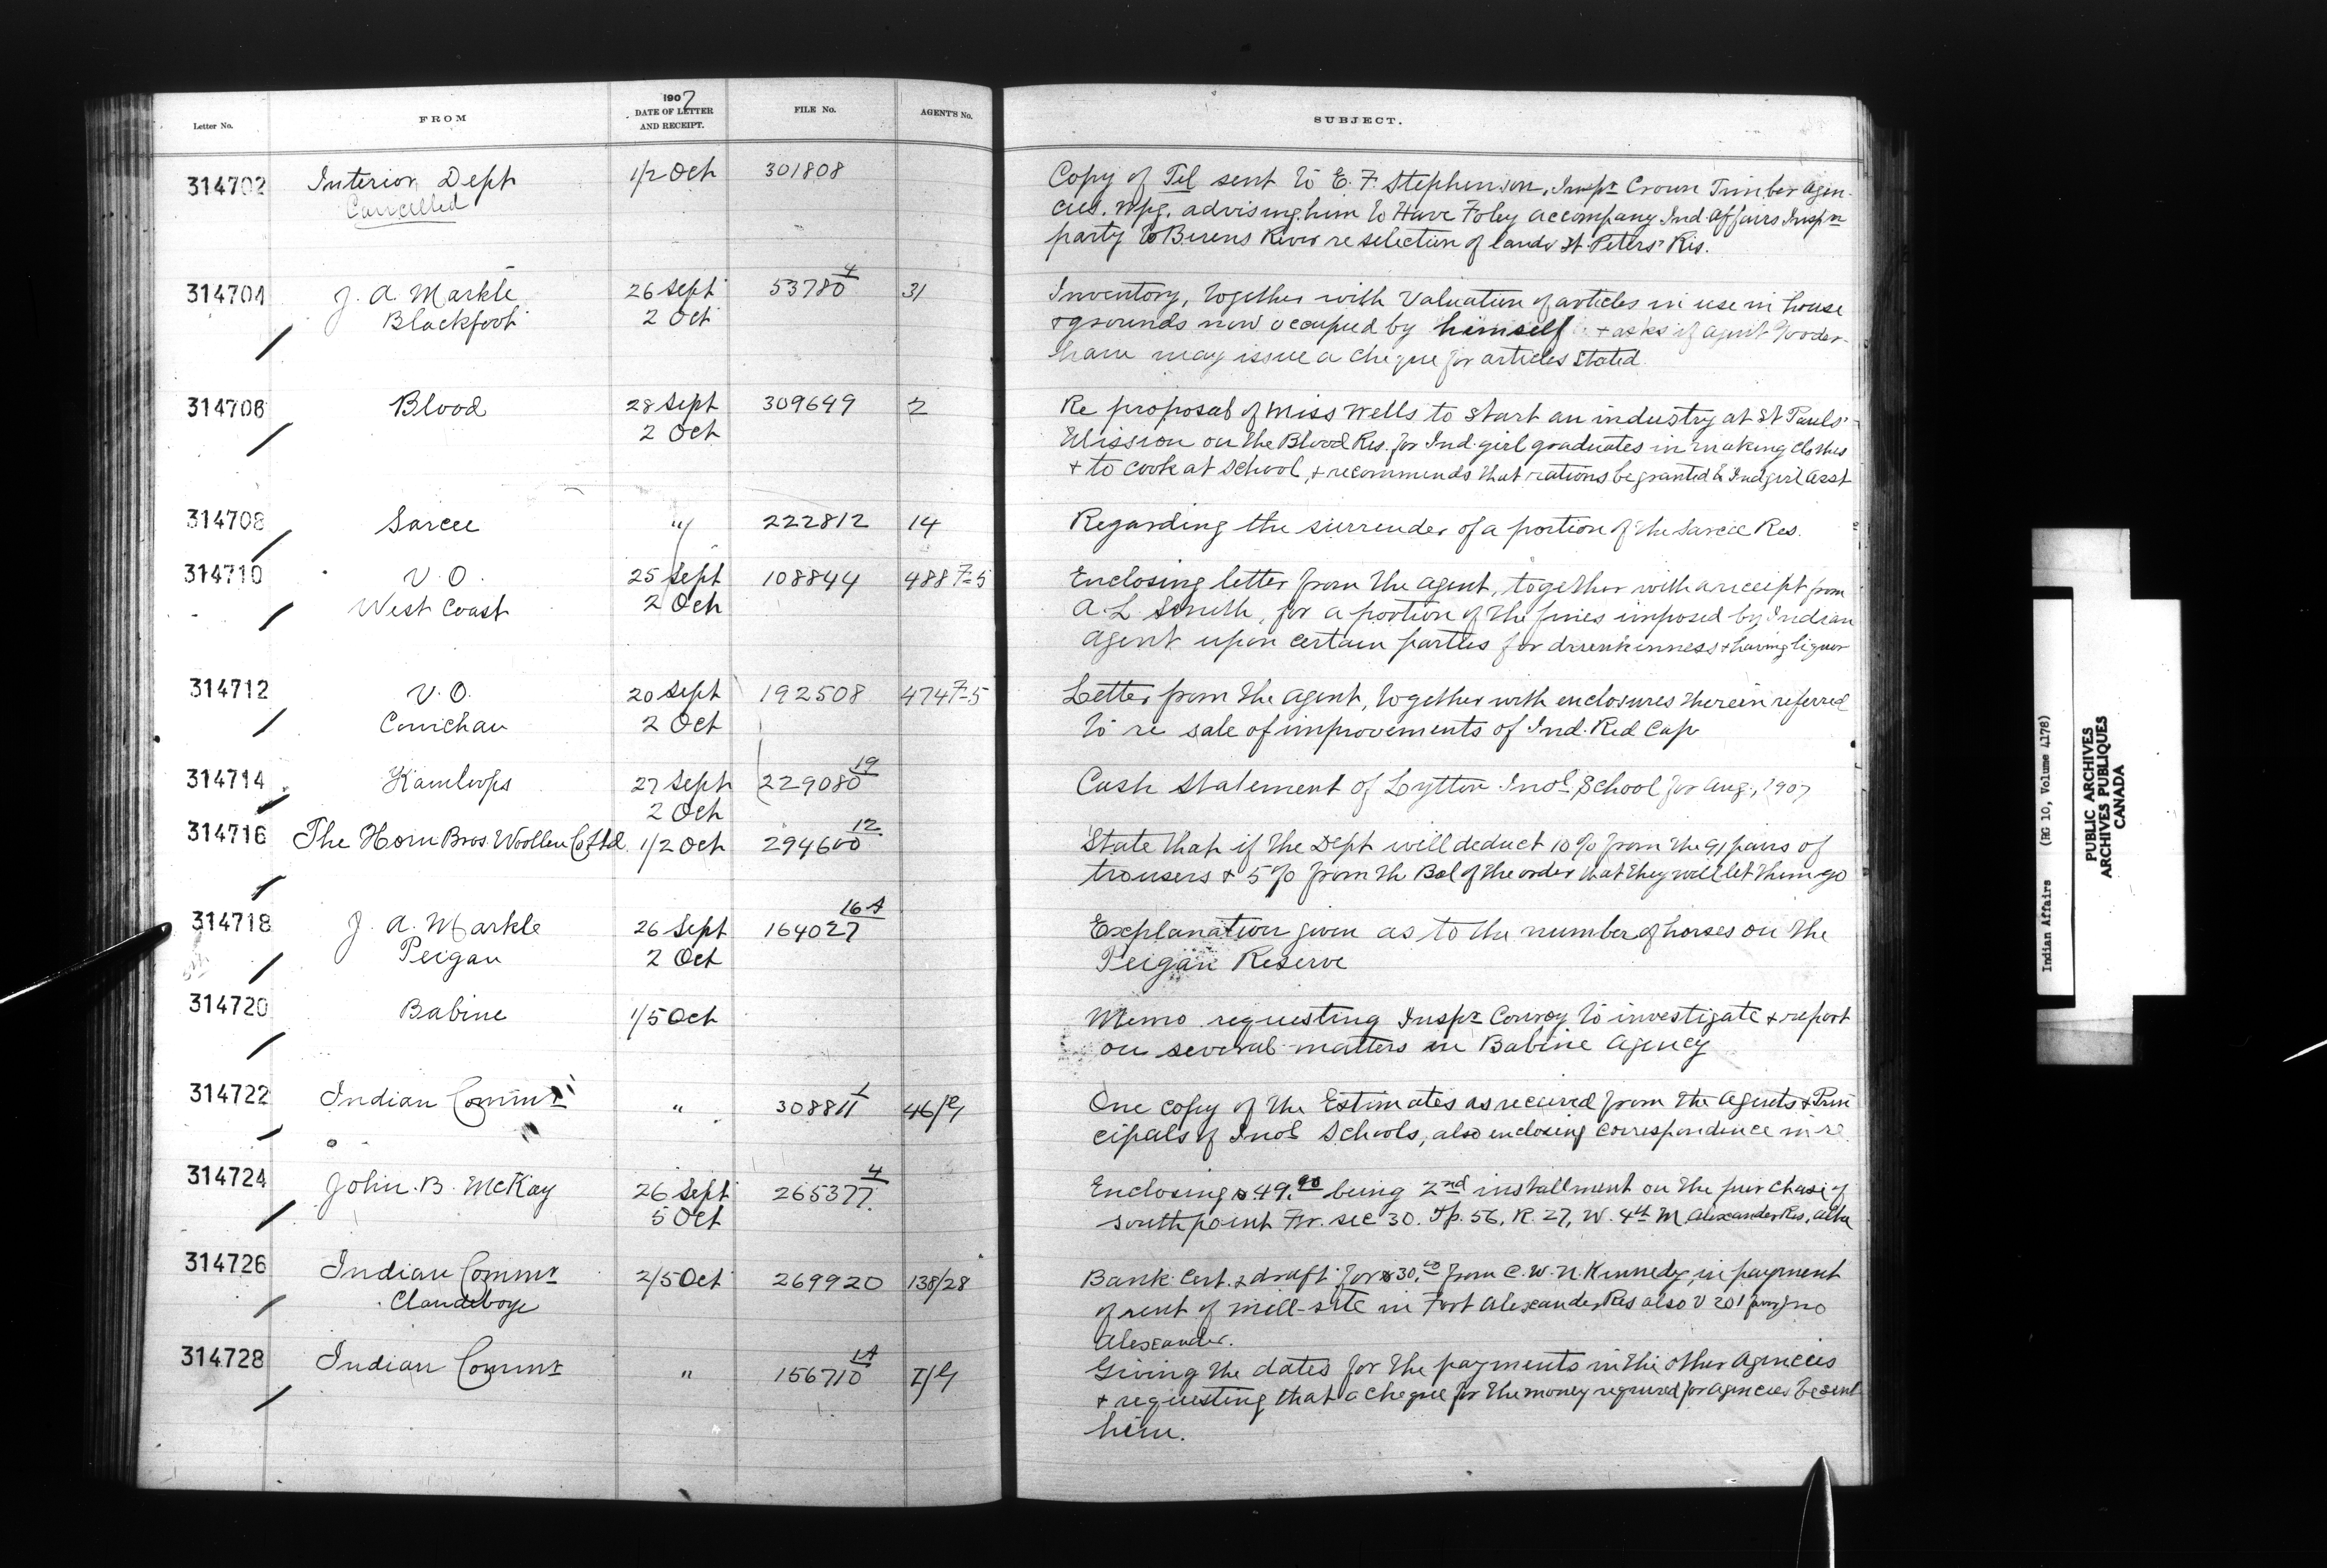 Letter No. FROM 1907 DATE OF LETTER AND RECEIPT. FILE No. AGENT'S No. SUBJECT.
314702 Interior Dept 1/2 Oct 301808 Copy of Tel sent to E. F. Stephenson, Inspr Crown Timber Agen-
Cancelled cies. Wpg. advising him to Have Foley accompany Ind. Affairs Inspn
party to Berens River re selection of lands St. Peters' Res.
314704 J. A. Markle 26 Sept 53780 4 31 Inventory, together with Valuation of articles in use in house
Blackfoot 2 Oct & grounds now occupied by himself & asks if agent Gooder-
ham may issue a cheque for articles stated.
314706 Blood 28 Sept 309649 2 Re proposal of Miss Wells to start an industry at St Pauls'
2 Oct Mission on the Blood Res. for Ind. girl graduates in making clothes
& to cook at School, & recommends that rations be granted to Ind girl asst
314708 Sarcee " 222812 14 Regarding the surrender of a portion of the Sarcee Res.
314710 V. O. 25 Sept 108844 488 7-5 Enclosing letter from the agent, together with a receipt from
West Coast 2 Oct A. L. Smith, for a portion of the fines imposed by Indian
agent upon certain parties for drunkenness & having liquor
314712 V. O. 20 Sept 192508 474 7-5 Letter from the agent, together with enclosures therein referred
Cowichan 2 Oct to re sale of improvements of Ind. Red Cap
314714 Kamloops 27 Sept 229080 19 Cash Statement of Lytton Indl School for Aug., 1907
2 Oct
314716 The Horn Bros. Woollen Co Ltd. 1/2 Oct 294600 12 State that if the Dept will deduct 10% from the 91 pairs of
trousers & 5% from the Bal of the order that they will let them go
314718 J. A. Markle 26 Sept 164027 16A Explanation given as to the number of horses on the
Peigan 2 Oct Peigan Reserve
314720 Babine 1/5 Oct Memo requesting Inspr Conroy to investigate & report
on several matters in Babine Agency
314722 Indian Commr " 308811 1 46/G One copy of the Estimates as received from the agents & Prin
cipals of Indl Schools, also enclosing correspondence in re
314724 John. B. McKay 26 Sept 265377 4 Enclosing $49.90 being 2nd installment on the purchase of
5 Oct south point Fr. sec 30. Tp. 56, R. 27, W. 4th M Alexander Res, Alta
314726 Indian Commr 2/5 Oct 269920 138/28 Bank Cert. & draft for $30. from C. W. N. Kennedy, in payment
Clandeboye of rent of mill-site in Fort Alexander Res also V 201
Alexander.
314728 Indian Commr " 156710 1A I/G Giving the dates for the payments in the other Agencies
& requesting that a cheque for the money required for agencies be sent
him.
Indian Affairs (RG 10, Volume 4178)
PUBLIC ARCHIVES
ARCHIVES PUBLIQUES
CANADA